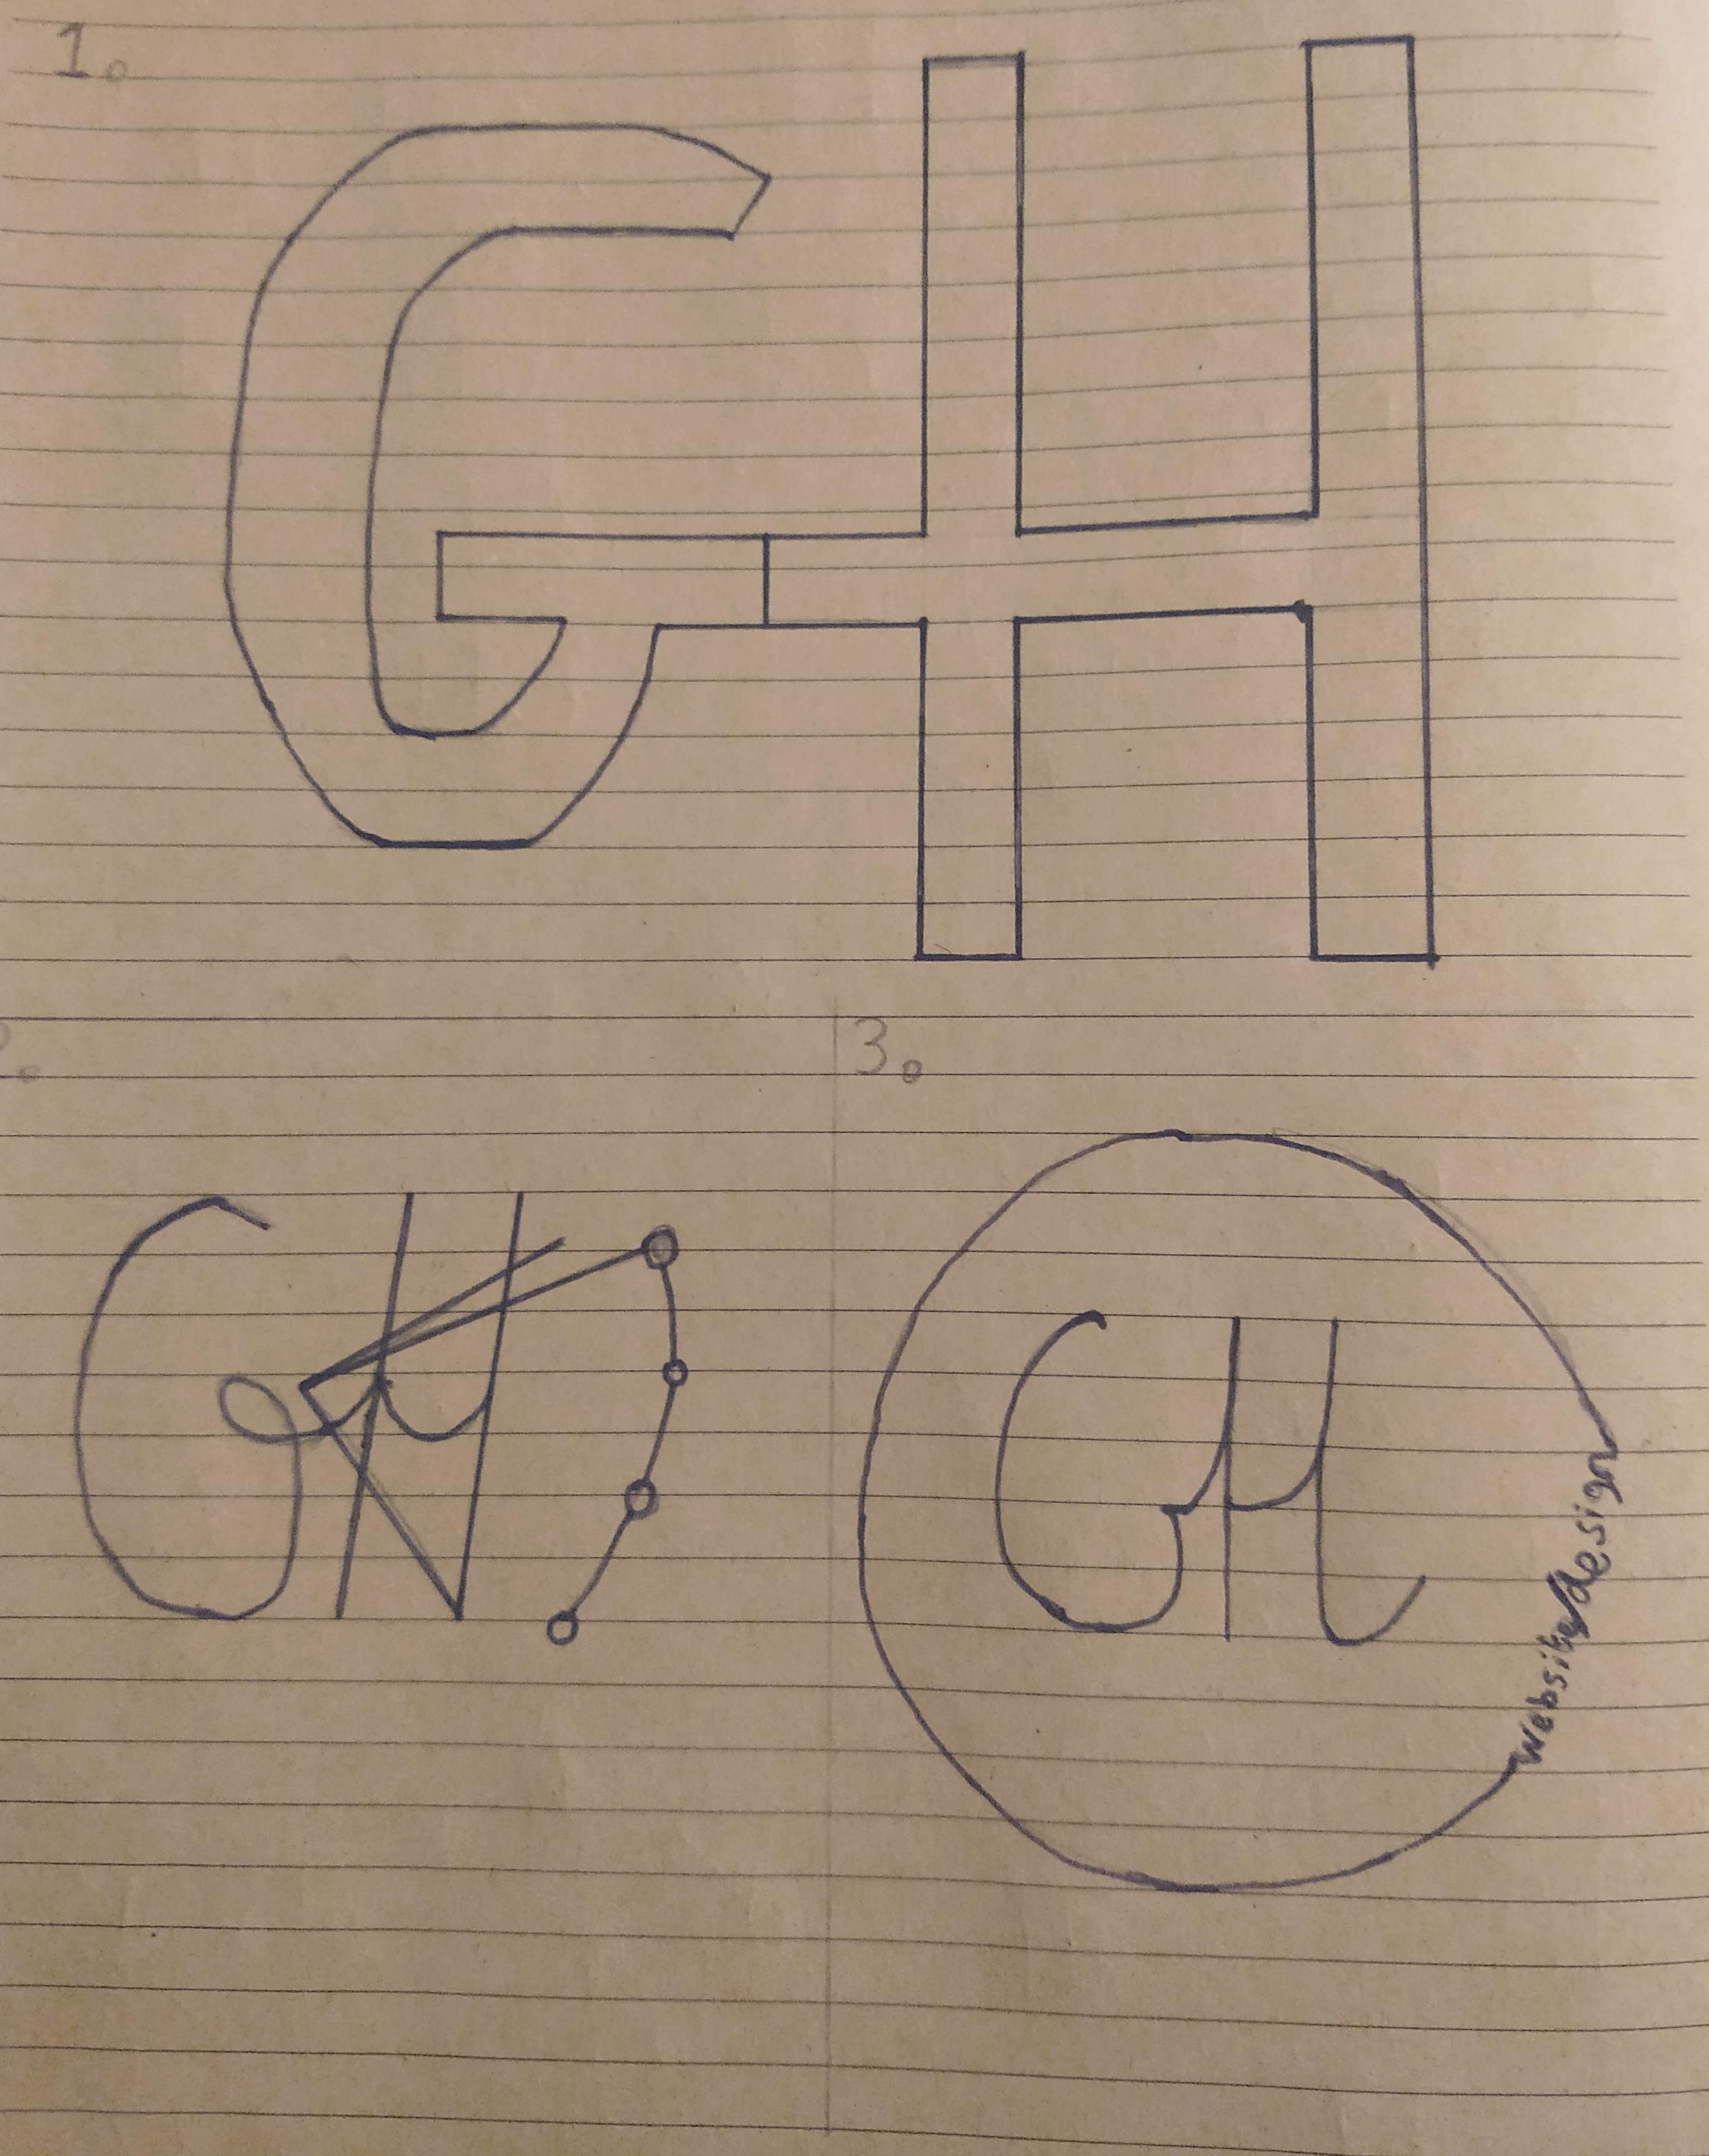 1.
GH
2.
GH
3.
GH
website/design